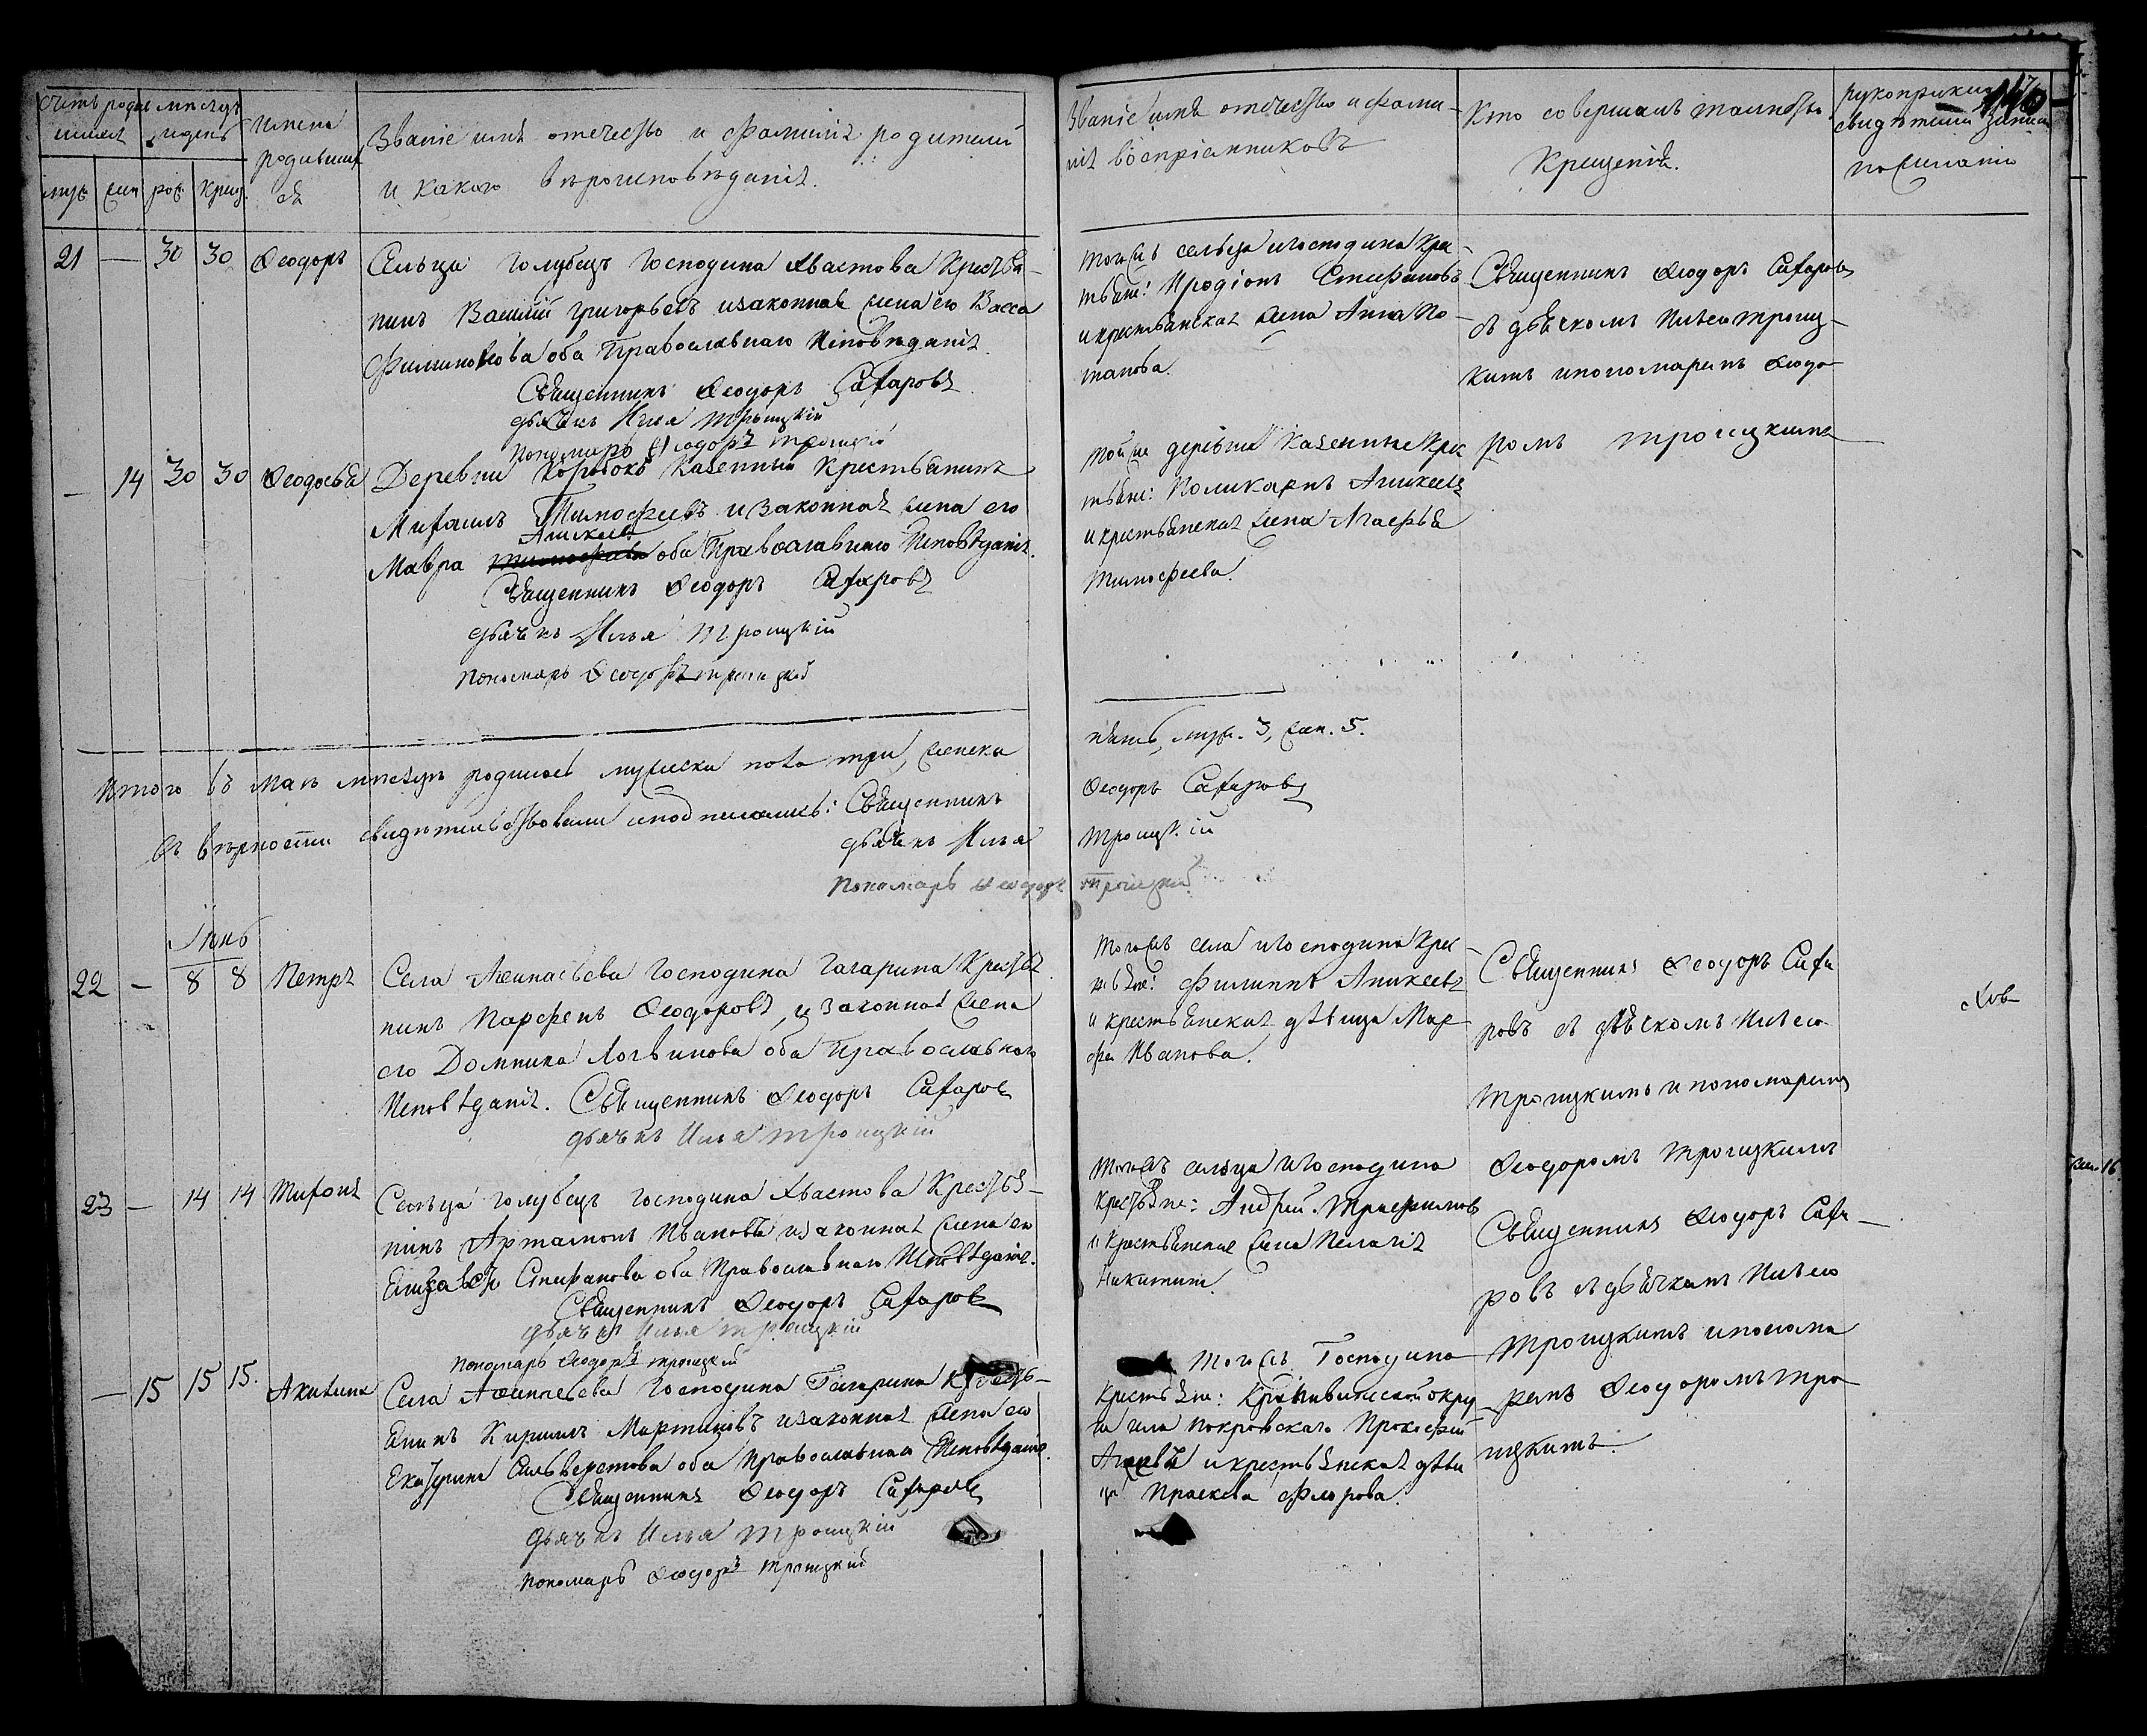 Счетъ родив мѣсяцъ
шихся и день
Имена
родивших
ся
муж жен рож крещ.
Званіе имя отечество и фамилія родителей
и какого вѣроисповѣданія.
Званіе имя отечество и фами-
лія воспріемниковъ
Кто совершалъ таинство
Крещенія.
рукоприклад
свидѣтелей записи
по желанію
21 — 30 30 Ѳеодоръ
Сельца Голубецъ Господина Хвастова Крестья-
нинъ Василій Григорьевъ и законная жена его Васса
Филимонова оба Православнаго Исповѣданія.
Священникъ Ѳеодоръ Сахаровъ
дьячекъ Илья Троицкій
пономарь Ѳеодоръ Троицкій
Тогожъ сельца и Господина Кре-
стьяне: Иродіонъ Стефановъ
и крестьянская жена Анна По-
тапова.
Священникъ Ѳеодоръ Сахаровъ
съ дьячкомъ Ильею Троиц-
кимъ и пономаремъ Ѳеодо-
ромъ Троицкимъ
— 14 30 30 Ѳеодосья
Деревни Коробокъ Казенный Крестьянинъ
Михаилъ Тимофеевъ и законная жена его
Аникеева
Мавра Тимофеева оба Православнаго Исповѣданія.
Священникъ Ѳеодоръ Сахаровъ
дьячекъ Илья Троицкій
пономарь Ѳеодоръ Троицкій
Той же деревни казенные Кре
стьяне: Поликарпъ Аникеевъ
и крестьянская жена Агафья
Тимофеева.
Итого въ маѣ мѣсяцѣ родилось мужеска пола три, женска
пять, муж. 3, жен. 5.
въ вѣрности свидѣтельствовали и подписались: Священникъ
Ѳеодоръ Сахаровъ
дьячекъ Илья
Троицкій
Пономарь Ѳеодоръ Троицкій
Іюнь
22 — 8 8 Петръ
Села Аѳанасьева Господина Гагарина Крестья
нинъ Парфенъ Ѳеодоровъ, и законная жена
его Домника Логвинова оба Православнаго
Исповѣданія. Священникъ Ѳеодоръ Сахаровъ
дьячекъ Илья Троицкій
Тогожъ села и Господина Кре-
стьяне: Филиппъ Аникеевъ
и крестьянская дѣвица Мар-
фа Иванова.
Священникъ Ѳеодоръ Саха
ровъ съ дьячкомъ Ильею
Троицкимъ и пономаремъ
Ѳеодоромъ Троицкимъ
23 — 14 14 Тихонъ
Сельца Голубецъ Господина Хвастова Крестья-
нинъ Артамонъ Ивановъ и законная жена его
Елизавета Стефанова оба Православнаго Исповѣданія.
Священникъ Ѳеодоръ Сахаровъ
дьячекъ Илья Троицкій
пономарь Ѳеодоръ Троицкій
Тогожъ сельца и Господина
Крестьяне: Андрей Трофимовъ
и Крестьянская жена Пелагія
Никитина.
Священникъ Ѳеодоръ Саха-
ровъ съ дьячкомъ Ильею
Троицкимъ и понома
ремъ Ѳеодоромъ Тро
ицкимъ.
— 15 15 15. Акилина
Села Аѳанасьева Господина Гагарина Кресть-
янинъ Кирилъ Мартиновъ и законная жена его
Екатерина Сильверстова оба Православнаго Исповѣданія.
Священникъ Ѳеодоръ Сахаровъ
дьячекъ Илья Троицкій
пономарь Ѳеодоръ Троицкій
Тогожъ Господина
Крестьяне: Крапивинской окру
га села Покровскаго Прокофій
и крестьянская дѣви
ца Праскева Флорова.